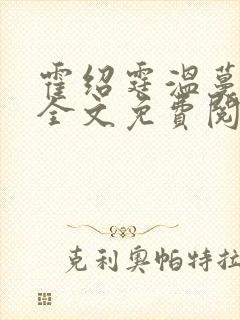 霍绍霆温蔓
全文免费阅
克利奥帕特拉